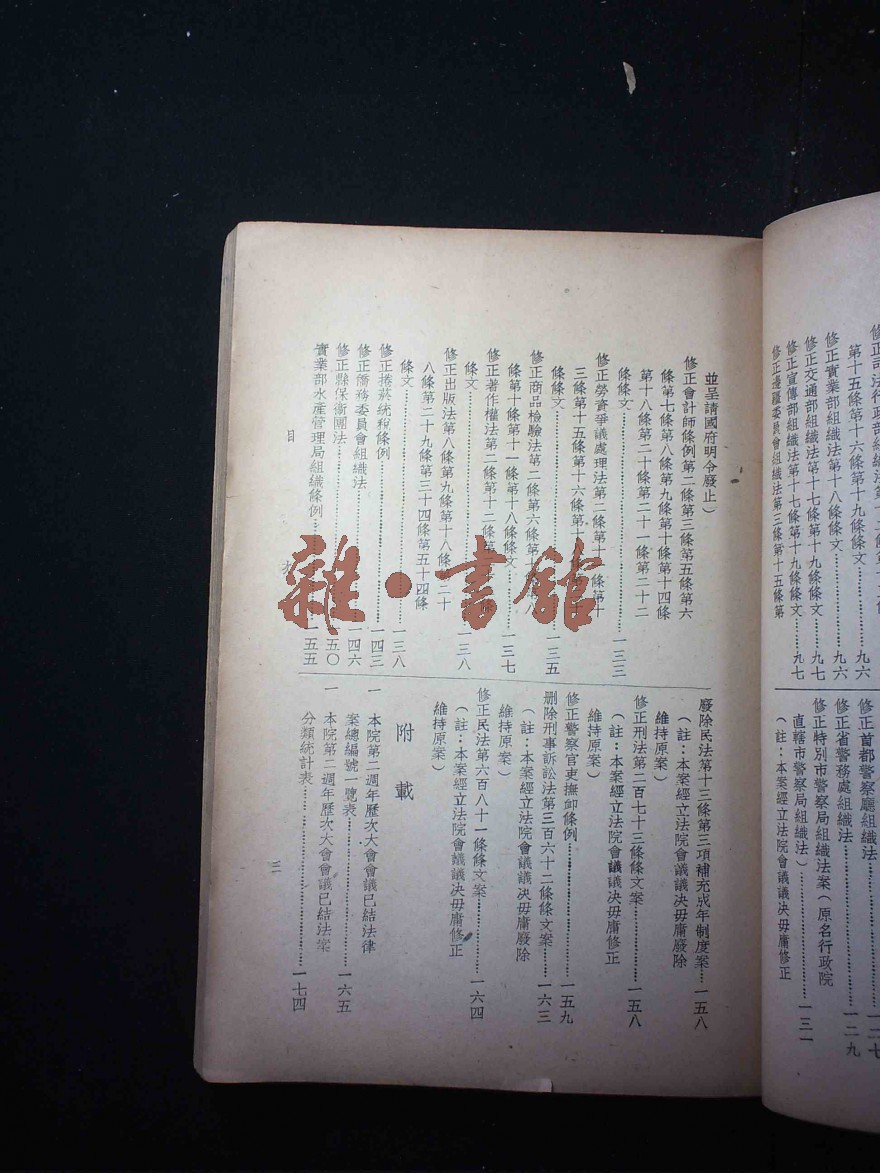 第十五條第十六條第十九條條文……九六
修正實業部組織法第十八條條文……九六
修正交通部組織法第十七條第十九條條文……九七
修正宣傳部組織法第十七條第十九條條文……九七
修正邊疆委員會組織法第三條第十五條第
修正首都警察廳組織法……一二七
修正省警務處組織法……一二九
修正特別市警察局組織法案(原名行政院
直轄市警察局組織法)……一三一
(註:本案經立法院會議議決毋庸修正
並呈請國府明令廢止)
修正會計師條例第二條第三條第五條第六
條第七條第八條第九條第十條第十四條
第十八條第二十條第二十一條第二十二
條條文……一三三
修正勞資爭議處理法第二條第十一條第十
三條第十五條第十六條第十
條條文……一三五
修正商品檢驗法第二條第六條第
條第十條第十一條第十八條條文……一三七
修正著作權法第二條第十二條第
條文……一三八
修正出版法第八條第九條第十八條第二十
八條第二十九條第三十四條第五十四條
條文……一三八
修正捲菸統稅條例……一四三
修正僑務委員會組織法……一四六
修正縣保衛團法……一五〇
實業部水產管理局組織條例……一五五
廢除民法第十三條第三項補充成年制度案……一五八
(註:本案經立法院會議議決毋庸廢除
維持原案)
修正刑法第二百七十三條條文案……一五八
(註:本案經立法院會議議決毋庸修正
維持原案)
修正警察官吏撫卹條例……一五九
刪除刑事訴訟法第三百六十二條條文案……一六三
(註:本案經立法院會議議決毋庸廢除
維持原案)
修正民法第六百八十一條條文案……一六四
(註:本案經立法院會議議決毋庸修正
維持原案)
附載
一 本院第二週年歷次大會會議已結法律
案總編號一覽表……一六五
一 本院第二週年歷次大會會議已結法案
分類統計表……一七四
目
三
雜·書館